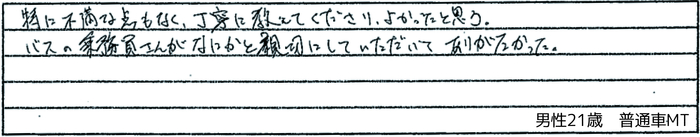 特に不満な点もなく、丁寧に教えてくださり、よかったと思う。
バスの乗務員さんがなにかと親切にしていただいて ありがたかった。
男性21歳　普通車MT